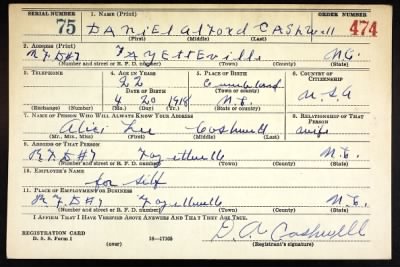 SERIAL NUMBER 1. NAME (Print) ORDER NUMBER
75 DANIEL Alford CASHwell 474
(First) (Middle) (Last)
2. ADDRESS (Print)
R.F.D #7 FAYETTEVille N.C.
(Number and street or R. F. D. number) (Town) (County) (State)
3. TELEPHONE 4. AGE IN YEARS 5. PLACE OF BIRTH 6. COUNTRY OF CITIZENSHIP
22 Cumberland
DATE OF BIRTH (Town or county) U.S.A
4 20 1918 N.C.
(Exchange) (Number) (Mo.) (Day) (Yr.) (State or country)
7. NAME OF PERSON WHO WILL ALWAYS KNOW YOUR ADDRESS 8. RELATIONSHIP OF THAT PERSON
Alice Lee Cashwell wife
(Mr., Mrs., Miss) (First) (Middle) (Last)
9. ADDRESS OF THAT PERSON
R.F.D #7 Fayetteville N.C.
(Number and street or R. F. D. number) (Town) (County) (State)
10. EMPLOYER'S NAME
for Self
11. PLACE OF EMPLOYMENT OR BUSINESS
R.F.D #7 Fayetteville N.C.
(Number and street or R. F. D. number) (Town) (County) (State)
I AFFIRM THAT I HAVE VERIFIED ABOVE ANSWERS AND THAT THEY ARE TRUE.
REGISTRATION CARD D. A Cashwell
D. S. S. Form 1 (over) 16—17105 (Registrant's signature)